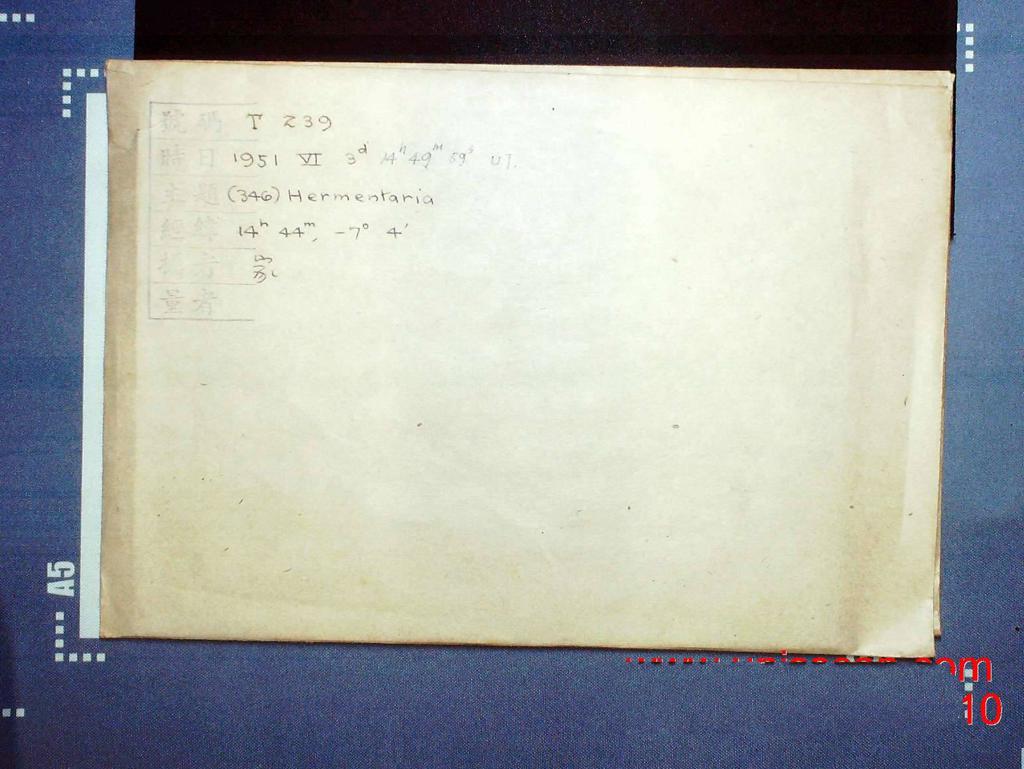 號碼 T 239
時日 1951 VI 3d 14h 49m 59s UT.
主題 (346) Hermentaria
經緯 14h 44m, -7° 4'
攝者
量者
A5
com
10